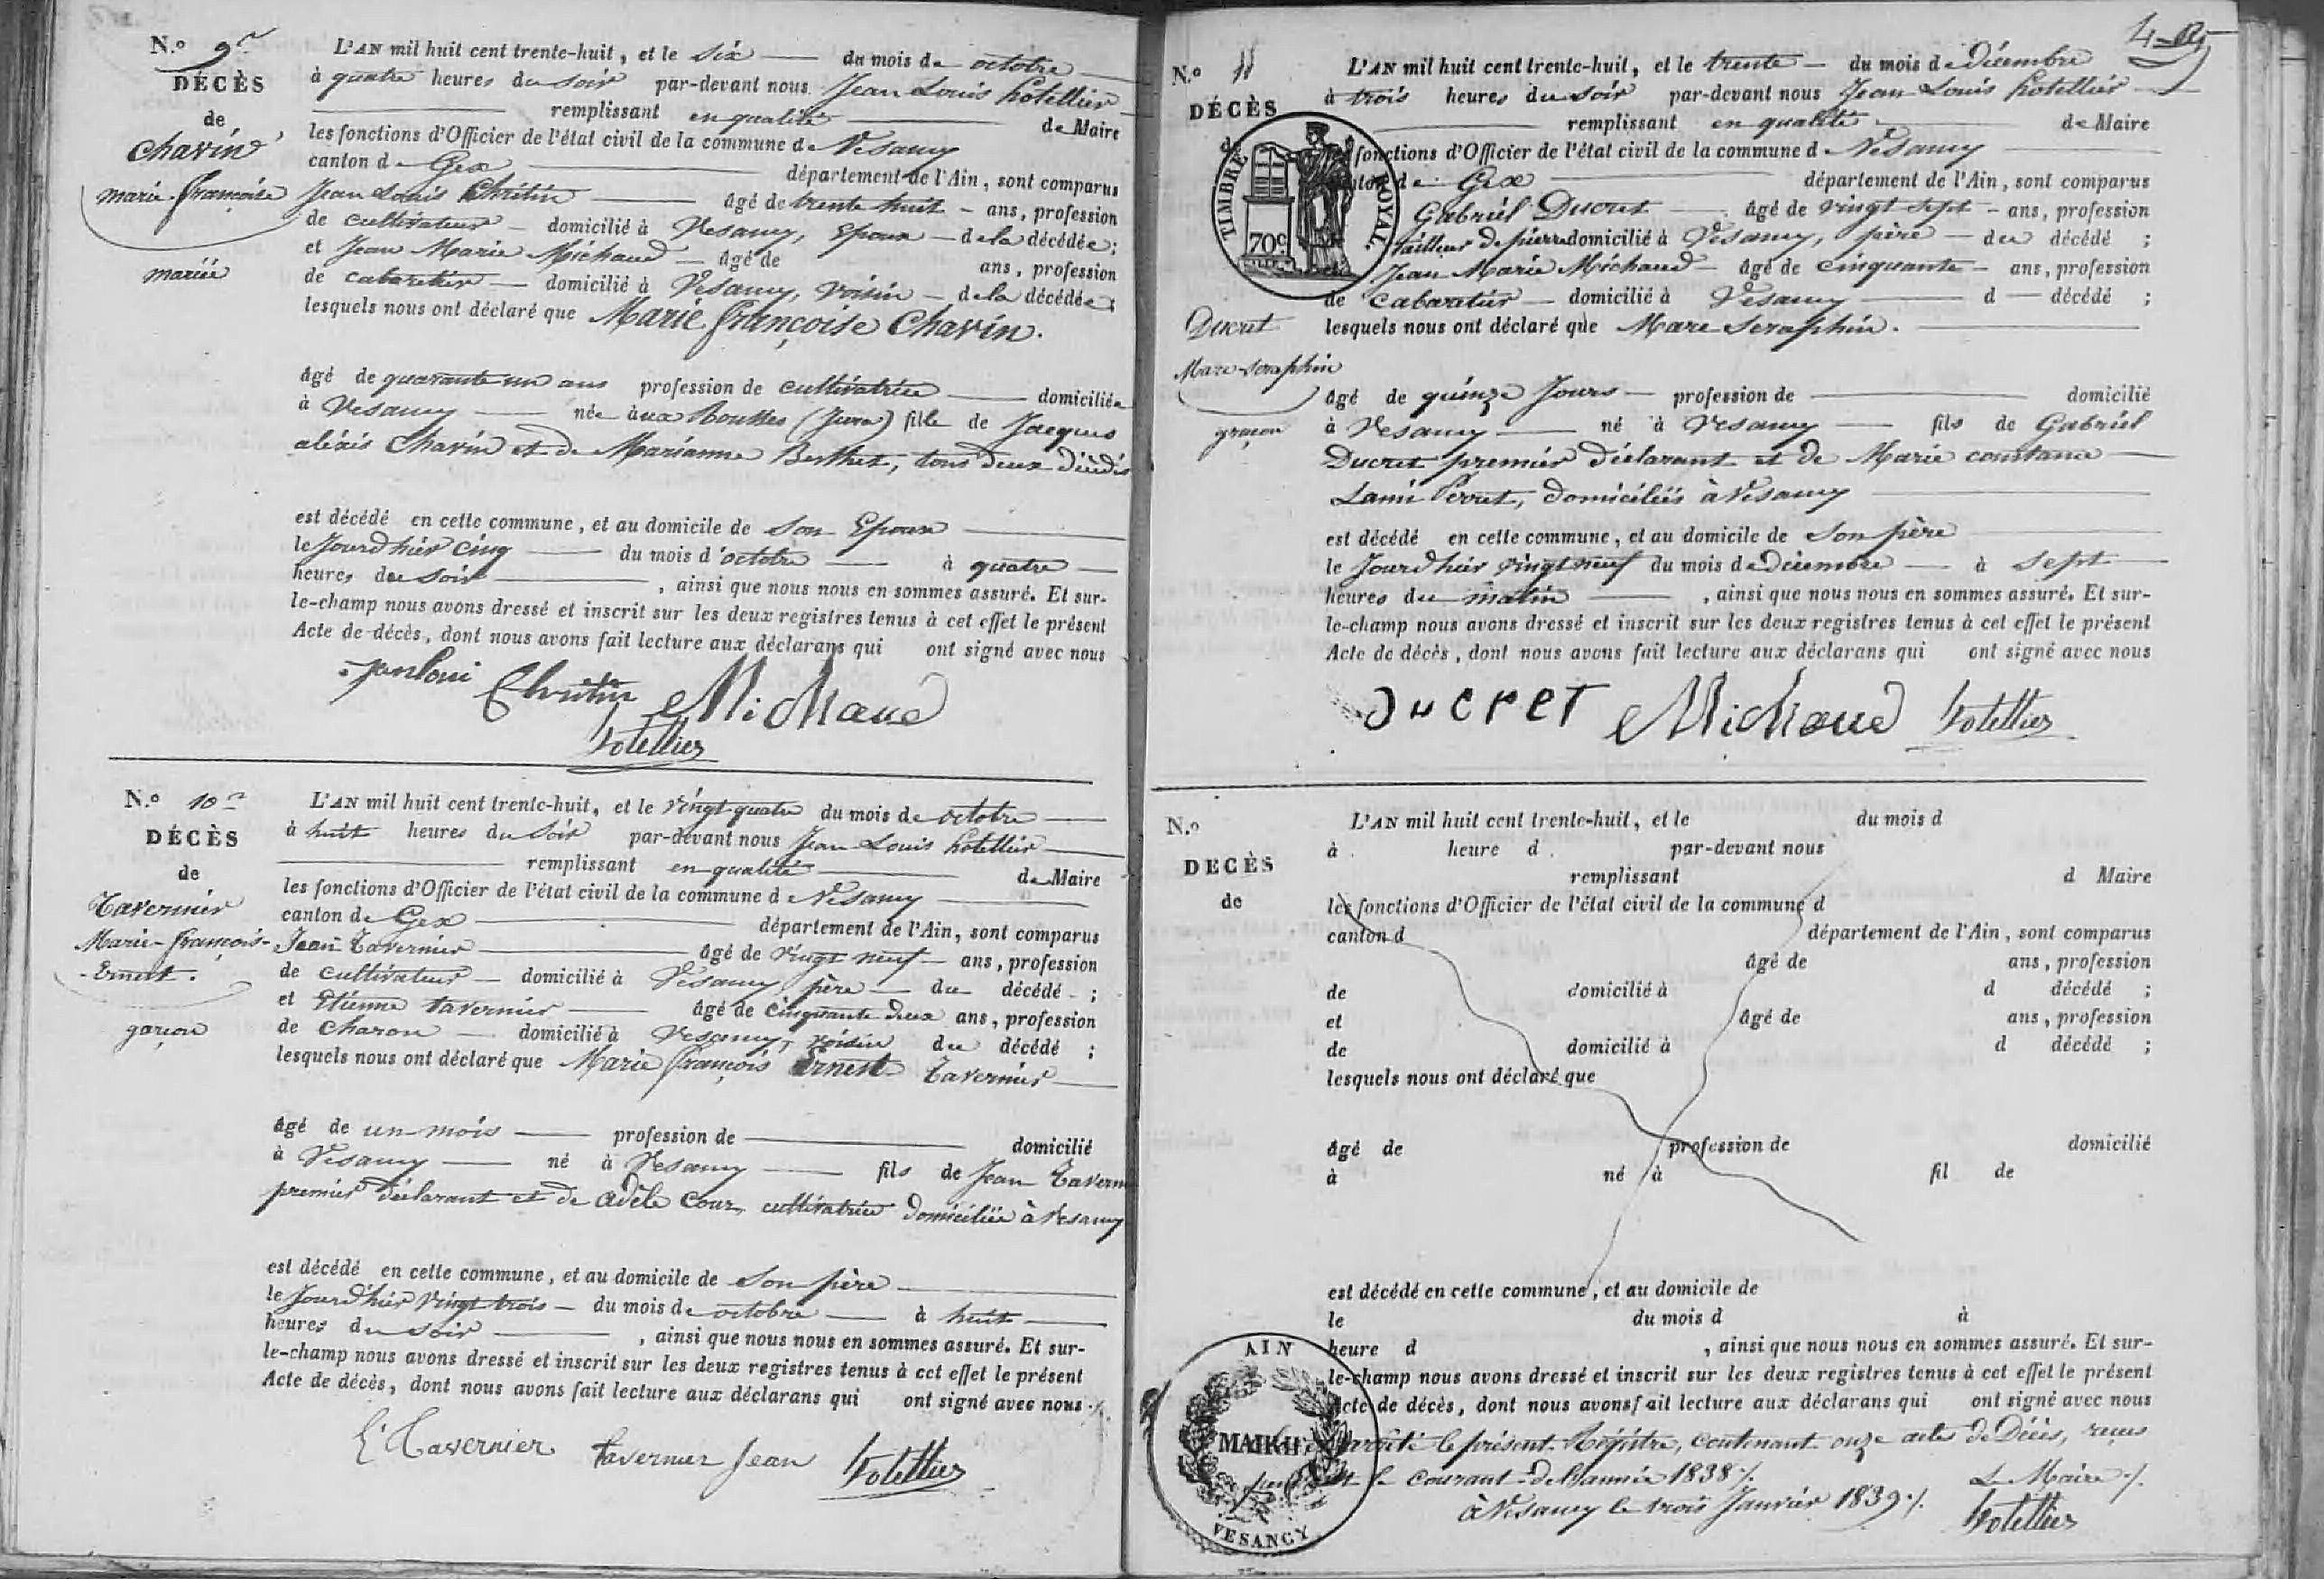 N.º 9.e
DÉCÈS
de
Chavin
marie-françoise
mariée
L'AN mil huit cent trente-huit, et le six du mois de octobre
à quatre heures du soir par-devant nous Jean Louis hotellier
remplissant en qualité de Maire
les fonctions d'Officier de l'état civil de la commune de Vesancy
canton de Gex département de l'Ain, sont comparus
Jean Louis Chrétin âgé de trente huit ans, profession
de cultivateur domicilié à Vesancy, Epoux de la décédée;
et Jean Marie Michaud âgé de ans, profession
de cabaretier domicilié à Vesancy, voisin de la décédée;
lesquels nous ont déclaré que Marie françoise Chavin.
âgé de quarante un ans profession de cultivatrice domiciliée
à Vesancy née aux Rousses (Jura) fille de Jacques
aléxis Chavin et de Marianne Berthet, tous deux décédés
est décédé en cette commune, et au domicile de son Epoux
le Jourd'hier cinq du mois d'octobre à quatre
heures du soir, ainsi que nous nous en sommes assuré. Et sur-
le-champ nous avons dressé et inscrit sur les deux registres tenus à cet effet le présent
Acte de décès, dont nous avons fait lecture aux déclarans qui ont signé avec nous
janloui Chretin Michaud
hotellier
N.º 10.e
DÉCÈS
de
Tavernier
Marie-françois-
-Ernest.
garçon
L'AN mil huit cent trente-huit, et le vingt quatre du mois de octobre
à huit heures du soir par-devant nous Jean Louis hotellier
remplissant en qualité de Maire
les fonctions d'Officier de l'état civil de la commune de Vesancy
canton de Gex département de l'Ain, sont comparus
Jean Tavernier âgé de vingt neuf ans, profession
de cultivateur domicilié à Vesancy père du décédé;
et Etienne tavernier âgé de cinquante deux ans, profession
de charon domicilié à Vesancy, voisin du décédé;
lesquels nous ont déclaré que Marie françois Ernest Tavernier
âgé de un mois profession de domicilié
à Vesancy né à Vesancy fils de Jean Tavern
premier déclarant et de adèle Cour, cultivatrice domiciliée à Vesancy
est décédé en cette commune, et au domicile de son père
le Jourd'hier vingt trois du mois de octobre à huit
heures du soir, ainsi que nous nous en sommes assuré. Et sur-
le-champ nous avons dressé et inscrit sur les deux registres tenus à cet effet le présent
Acte de décès, dont nous avons fait lecture aux déclarans qui ont signé avec nous ./.
E Tavernier tavernier jean hotellier
N.º 11
DÉCÈS
TIMBRE ROYAL
70c
Ducret
Marc-Seraphin
garçon
L'AN mil huit cent trente-huit, et le trente du mois de Décembre
à trois heures du soir par-devant nous Jean Louis hotellier
remplissant en qualité de Maire
fonctions d'Officier de l'état civil de la commune d Vesancy
de Gex département de l'Ain, sont comparus
Gabriel Ducret âgé de vingt sept ans, profession
tailleur de pierre domicilié à Vesancy, père du décédé;
Jean Marie Michaud âgé de cinquante ans, profession
de cabaretier domicilié à Vesancy d décédé;
lesquels nous ont déclaré que Marc Seraphin.
âgé de quinze Jours profession de domicilié
à Vesancy né à Vesancy fils de Gabriel
Ducret premier déclarant et de Marie constance
Lami Perret, domiciliés à Vesancy
est décédé en cette commune, et au domicile de son père
le Jourd'hier vingt neuf du mois de Décembre à sept
heures du matin, ainsi que nous nous en sommes assuré. Et sur-
le-champ nous avons dressé et inscrit sur les deux registres tenus à cet effet le présent
Acte de décès, dont nous avons fait lecture aux déclarans qui ont signé avec nous
Ducret Michaud hotellier
N.º
DECÈS
de
L'AN mil huit cent trente-huit, et le du mois d
à heure d par-devant nous
remplissant d Maire
les fonctions d'Officier de l'état civil de la commune d
canton d département de l'Ain, sont comparus
âgé de ans, profession
de domicilié à d décédé;
et âgé de ans, profession
de domicilié à d décédé;
lesquels nous ont déclaré que
âgé de profession de domicilié
à né à fil de
est décédé en cette commune, et au domicile de
le du mois d à
heure d, ainsi que nous nous en sommes assuré. Et sur-
le-champ nous avons dressé et inscrit sur les deux registres tenus à cet effet le présent
Acte de décès, dont nous avons fait lecture aux déclarans qui ont signé avec nous
arrêté le présent Régistre, contenant onze actes de Décès, reçus
le courant de l'année 1838 ./.
à Vesancy le trois Janvier 1839 ./. Le Maire ./.
hotellier
AIN
MAIRIE
VESANCY